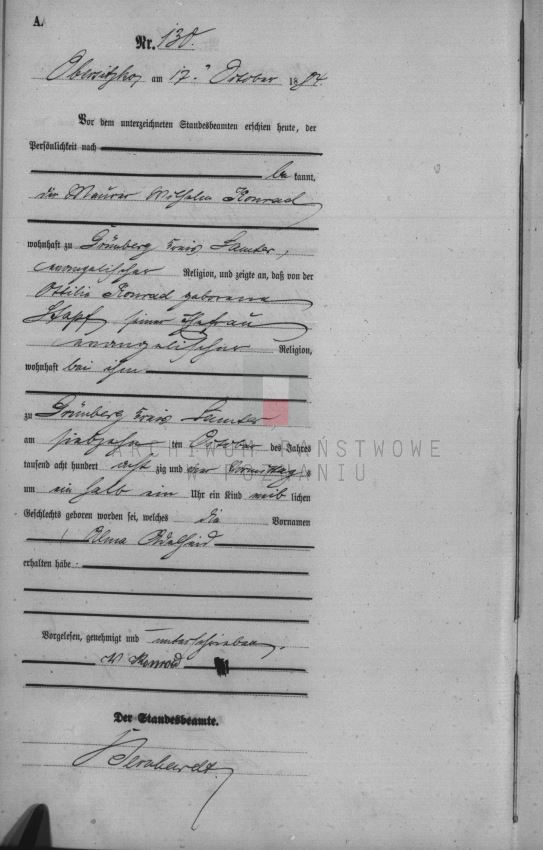 A.
Nr. 130.
Obersitzko, am 17. October 1884.
Vor dem unterzeichneten Standesbeamten erschien heute, der
Persönlichkeit nach
bekannt,
der Maurer Wilhelm Konrad
wohnhaft zu Grünberg Kreis Samter,
evangelischer Religion, und zeigte an, daß von der
Ottilie Konrad geborene
Stapf seiner Ehefrau
evangelischer Religion,
wohnhaft bei ihm
zu Grünberg Kreis Samter
am siebzehnten October des Jahres
tausend acht hundert achtzig und vier Vormittags
um ein halb ein Uhr ein Kind weiblichen
Geschlechts geboren worden sei, welches die Vornamen
Alma Adelheid
erhalten habe
Vorgelesen, genehmigt und unterschrieben.
W Konrad
Der Standesbeamte.
Bernhardt.
ARCHIWUM PAŃSTWOWE
W POZNANIU